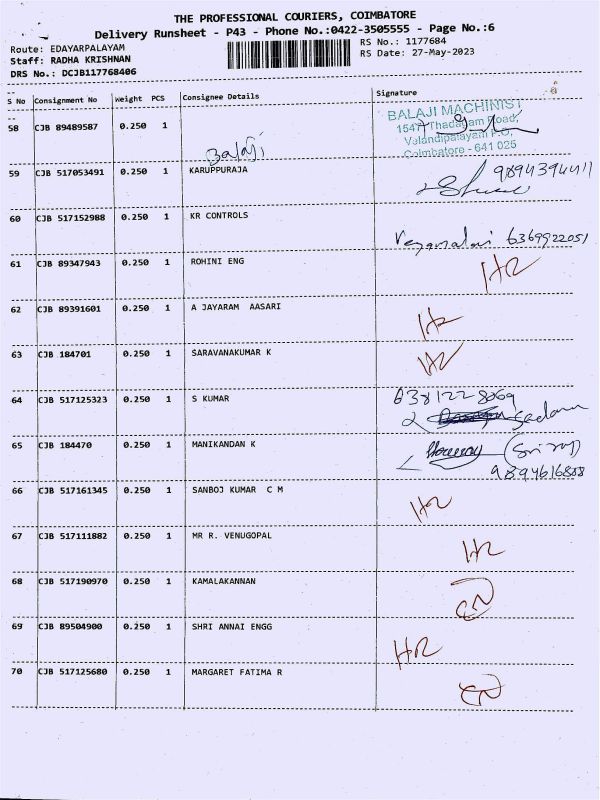 THE PROFESSIONAL COURIERS, COIMBATORE
Delivery Runsheet - P43 - Phone No.:0422-3505555 - Page No.:6
Route: EDAYARPALAYAM
Staff: RADHA KRISHNAN
DRS No.: DCJB117768406
RS No.: 1177684
RS Date: 27-May-2023
S No Consignment No Weight PCS Consignee Details Signature
58 CJB 89489587 0.250 1
BALAJI MACHINIST
1547, Thadagam Road,
Velandipalayam P.O,
Coimbatore - 641 025
Balaji
59 CJB 517053491 0.250 1 KARUPPURAJA
9894394411
60 CJB 517152988 0.250 1 KR CONTROLS
6369922051
61 CJB 89347943 0.250 1 ROHINI ENG
62 CJB 89391601 0.250 1 A JAYARAM AASARI
63 CJB 184701 0.250 1 SARAVANAKUMAR K
64 CJB 517125323 0.250 1 S KUMAR
6381228069
65 CJB 184470 0.250 1 MANIKANDAN K
9894616888
66 CJB 517161345 0.250 1 SANBOJ KUMAR C M
67 CJB 517111882 0.250 1 MR R. VENUGOPAL
68 CJB 517190970 0.250 1 KAMALAKANNAN
69 CJB 89504900 0.250 1 SHRI ANNAI ENGG
70 CJB 517125680 0.250 1 MARGARET FATIMA R